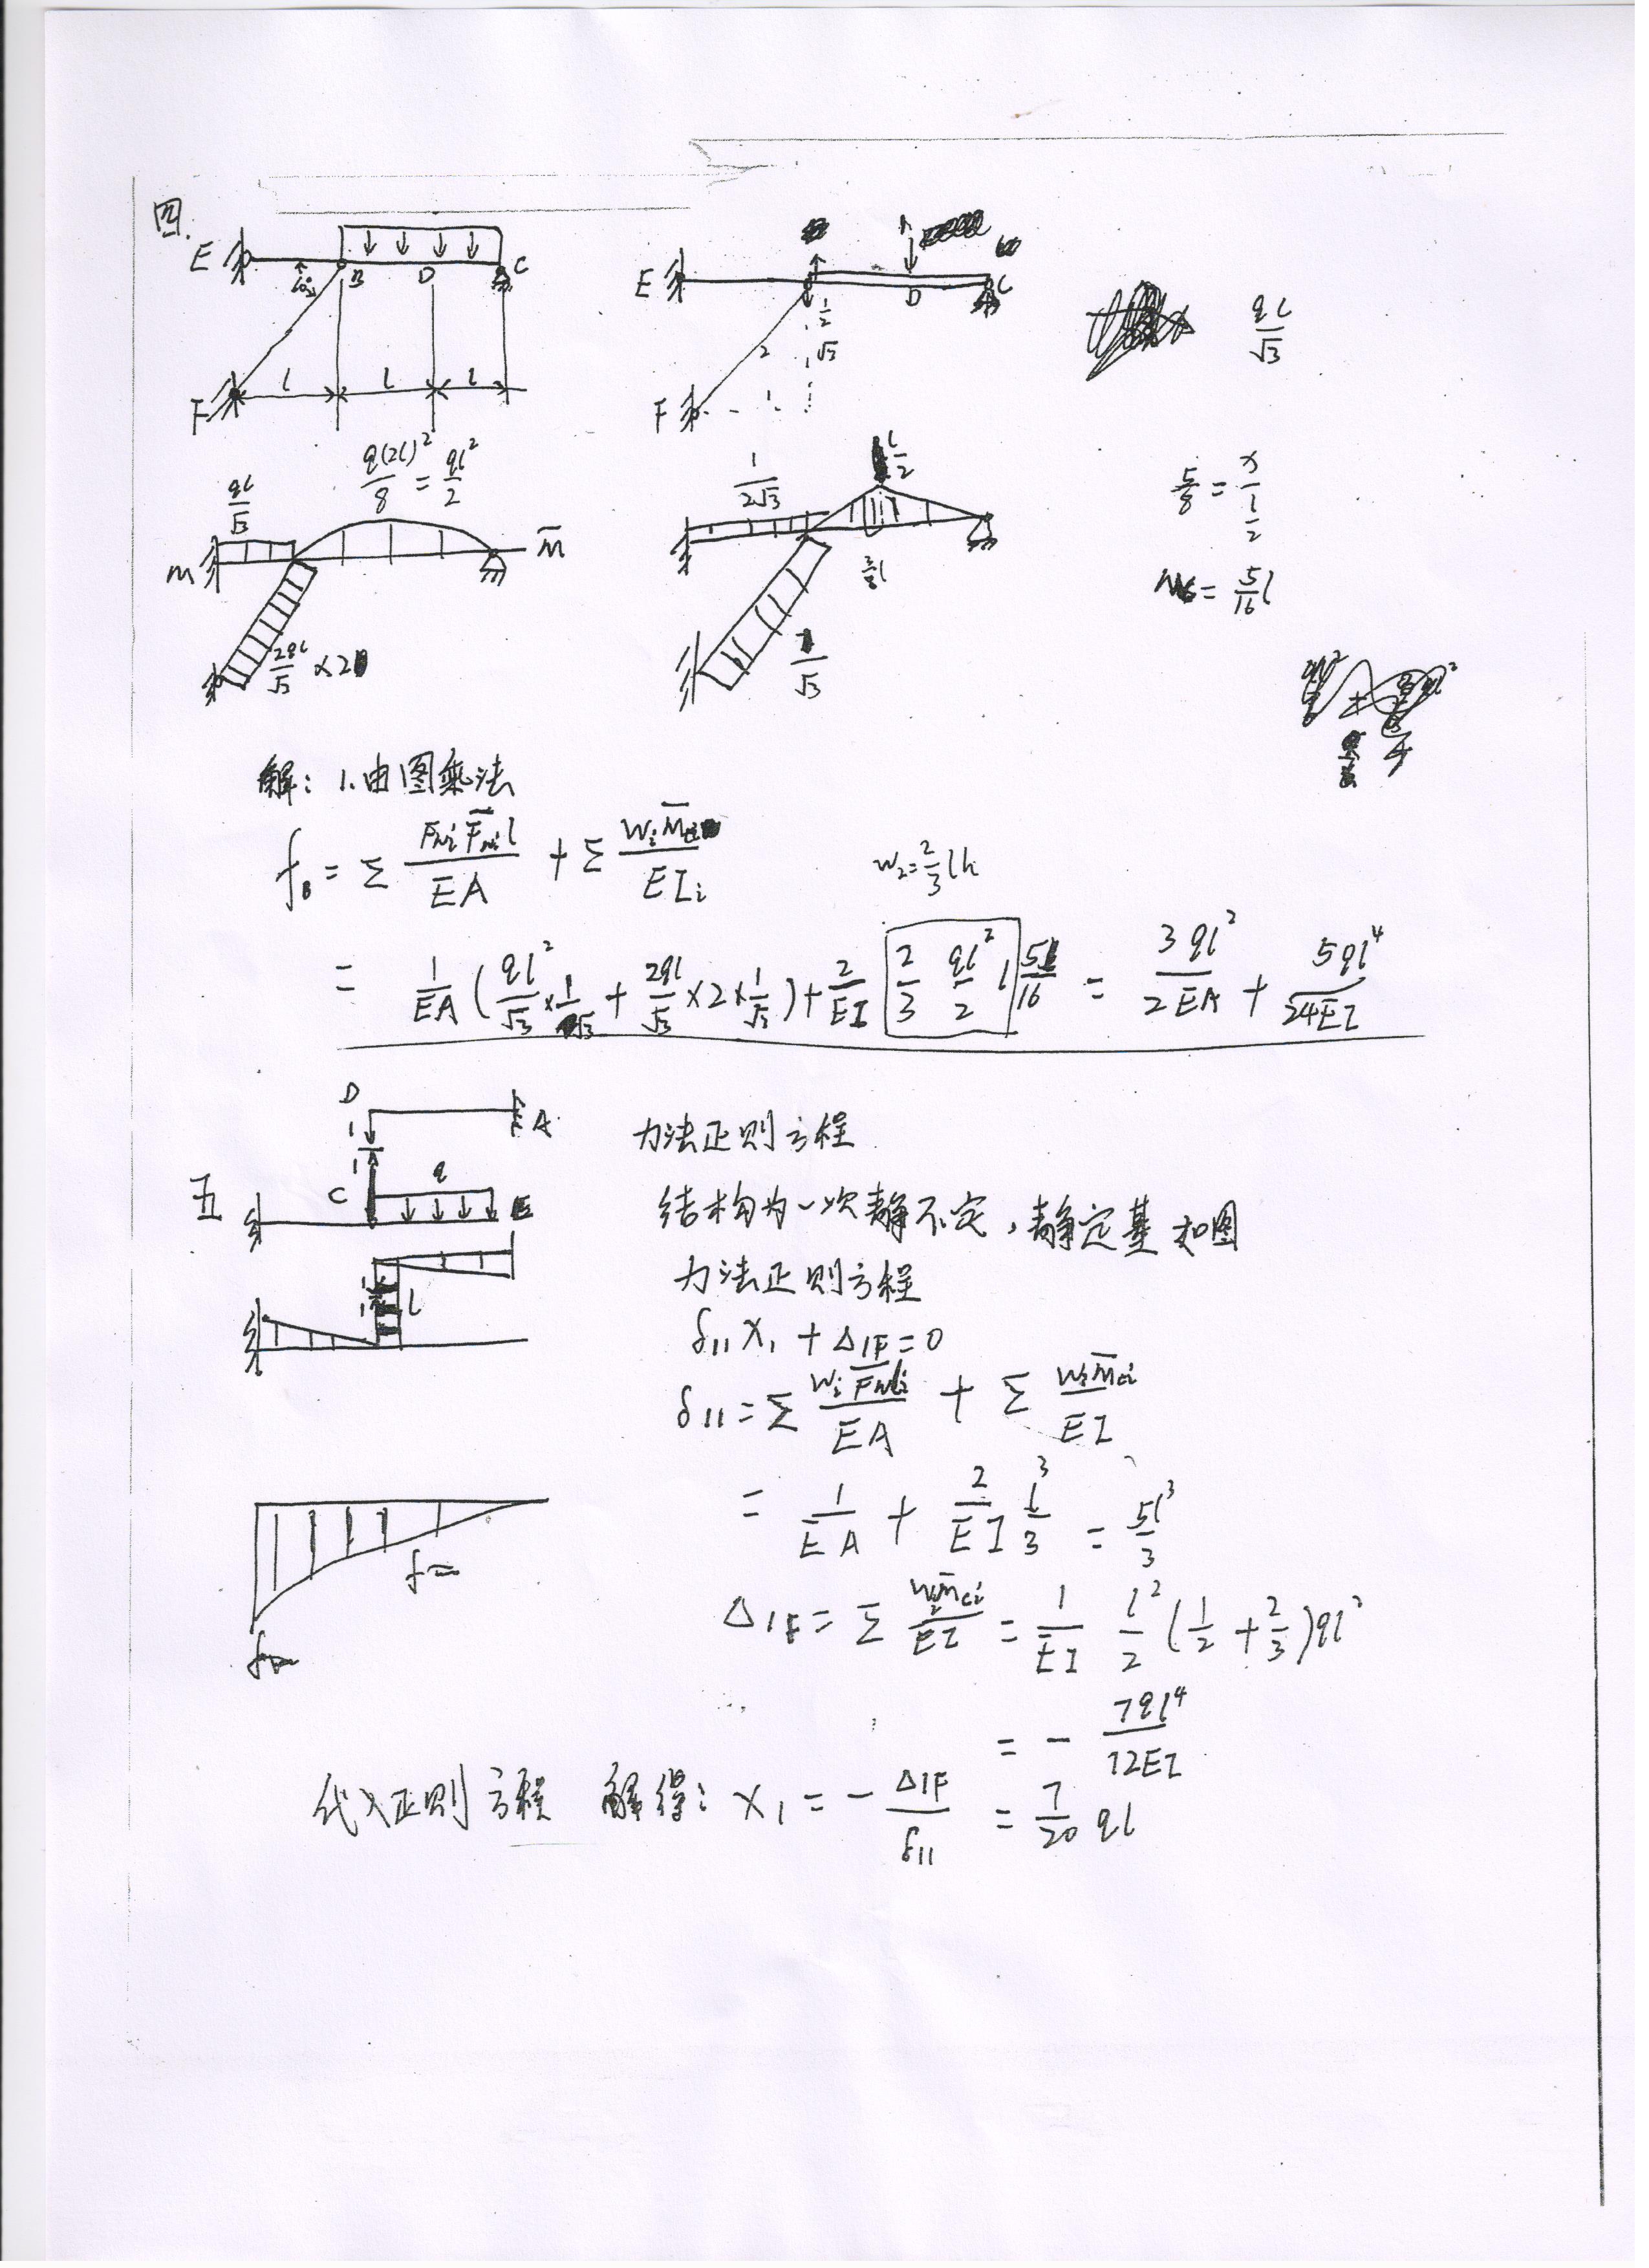 四.
E B D C
60°
F l l l
E D C
1/2
2 √3
F 1
ql/√3
ql/√3 q(2l)²/8 = ql²/2
M M̄
2ql/√3 ×2
1/2√3 l/2
1/√3
5/8 = x/(l/2)
= 5/16 l
解：1.由图乘法
f_B = Σ F_Ni F̄_Ni l / EA + Σ W_i M̄_ci / EI_i
W₂ = 2/3 lh
= 1/EA (ql²/√3 × 1/2√3 + 2ql/√3 ×2× 1/√3) + 2/EI 2/3 ql²/2 l 5l/16 = 3ql²/2EA + 5ql⁴/24EI
五
D A
1
1
C q
l
力法正则方程
结构为一次静不定，静定基如图
力法正则方程
δ₁₁X₁ + Δ₁F = 0
δ₁₁ = Σ W_i F̄_Ni / EA + Σ W_i M̄_ci / EI
= 1/EA + 2/EI l³/3 = 5l³/3
Δ₁F = Σ W_i M̄_ci / EI = 1/EI l²/2 (1/2 + 2/3) ql²
= - 7ql⁴/12EI
代入正则方程 解得：X₁ = - Δ₁F/δ₁₁ = 7/20 ql